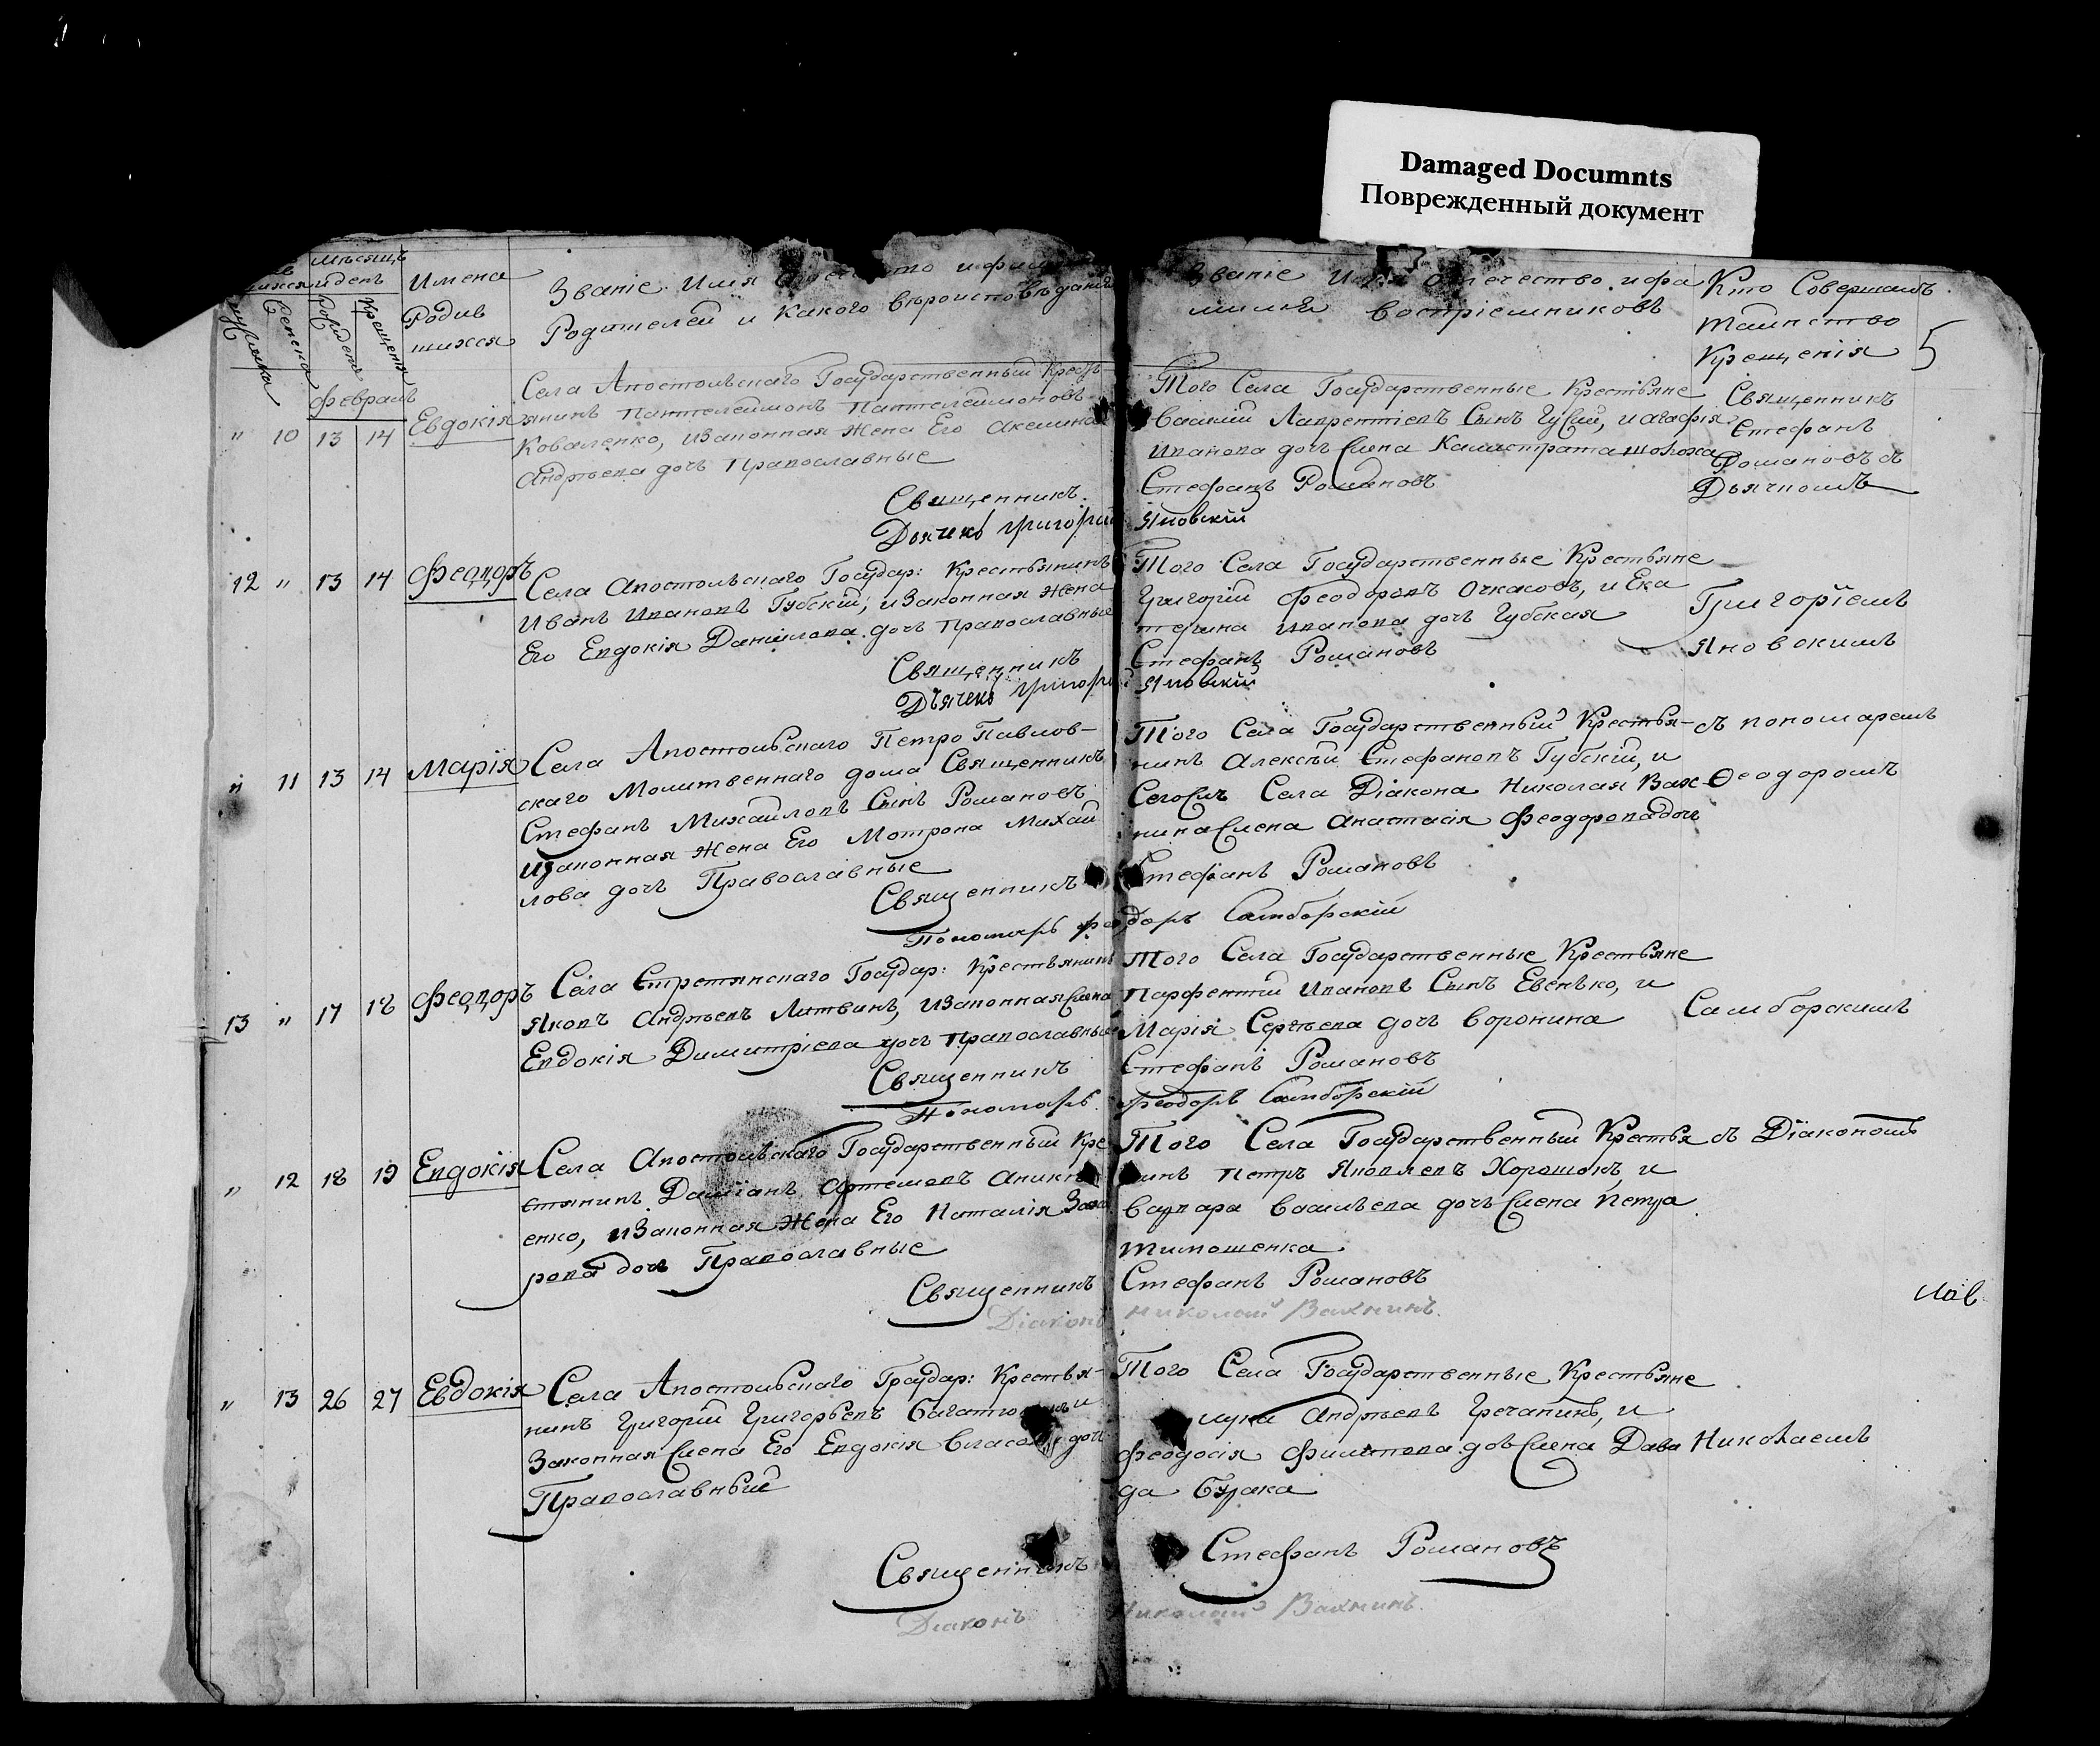 Damaged Documnts
Поврежденный документ
мѣсяцъ
и день
Имена
Родив
шихся
мужска
женска
Рожденія
Крещенія
Званіе Имя
Родителей и какого вѣроисповѣданія
Званіе Имя Отечество и фа
милія воспріемниковъ
Кто Совершалъ
таинство
Крещенія
5
февраль
" 10 13 14 Евдокія
Села Апостольскаго Государственный Крестъ-
янинъ Пантелеимонъ Пантелеимоновъ
Коваленко, и законная жена Его Акелина
Андрѣева дочъ православные
Священникъ
Дьячекъ Григорій
Того Села Государственные Крестьяне
Василий Лаврентіевъ Сынъ Гусий, и агафія
Иванова дочъ жена Калистрата
Стефанъ Романовъ
Яновскій
Священникъ
Стефанъ
Романовъ съ
Дьячкомъ
12 " 13 14 Феодоръ
Села Апостольскаго Государ: Крестьянинъ
Иванъ Ивановъ Губскій, и законная жена
Его Евдокія Даніилова дочъ православные
Священникъ
Дьячекъ Григорій
Того Села Государственные Крестьяне
Григорій Феодоровъ Очкасовъ, и Ека
терина Иванова дочъ Губская
Стефанъ Романовъ
Яновскій
Григоріемъ
Яновскимъ
" 11 13 14 Марія
Села Апостольскаго Петро Павлов-
скаго Молитвеннаго дома Священникъ
Стефанъ Михайловъ Сынъ Романовъ
и законная жена Его Мотрона Михай
лова дочъ Православные
Священникъ
Пономарь Фео
Того Села Государственный Крестья-
нинъ Алексѣй Стефановъ Губскій, и
Села Діакона Николая Вах
нина жена Анастасія Феодорова дочъ
Стефанъ Романовъ
доръ Самборскій
съ пономаремъ
Ѳеодоромъ
13 " 17 18 Феодоръ
Села Стретянскаго Государ: Крестьянинъ
Яковъ Андрѣевъ Литвинъ, и законная жена
Евдокія Димитріева дочъ православные
Священникъ
Пономарь
Того Села Государственные Крестьяне
Парфентий Ивановъ Сынъ Евенько, и
Марія Сергѣева дочъ Воронина
Стефанъ Романовъ
Феодоръ Самборскій
Самборскимъ
" 12 18 19 Евдокія
Села Апостольскаго Государственный Кре
стянинъ Даміанъ Артемовъ Аники
енко, и законная жена Его Наталія Заха
рова дочъ Православные
Священникъ
Діаконъ
Того Села Государственный Крестья
нинъ Петръ Яковлевъ Хорошокъ, и
Варвара Васильева дочъ жена Петра
Тимошенка
Стефанъ Романовъ
Николай Вахнинъ
съ Діакономъ
" 13 26 27 Евдокія
Села Апостольскаго Государ: Крестья-
нинъ Григорій Григорьевъ и
Законная жена Его Евдокія дочъ
Православный
Священникъ
Діаконъ
Того Села Государственные Крестьяне
Лука Андрѣевъ Гречанинъ, и
Феодосія Филипова дочъ жена Дави
да Бурака
Стефанъ Романовъ
Николай Вахнинъ
Николаемъ